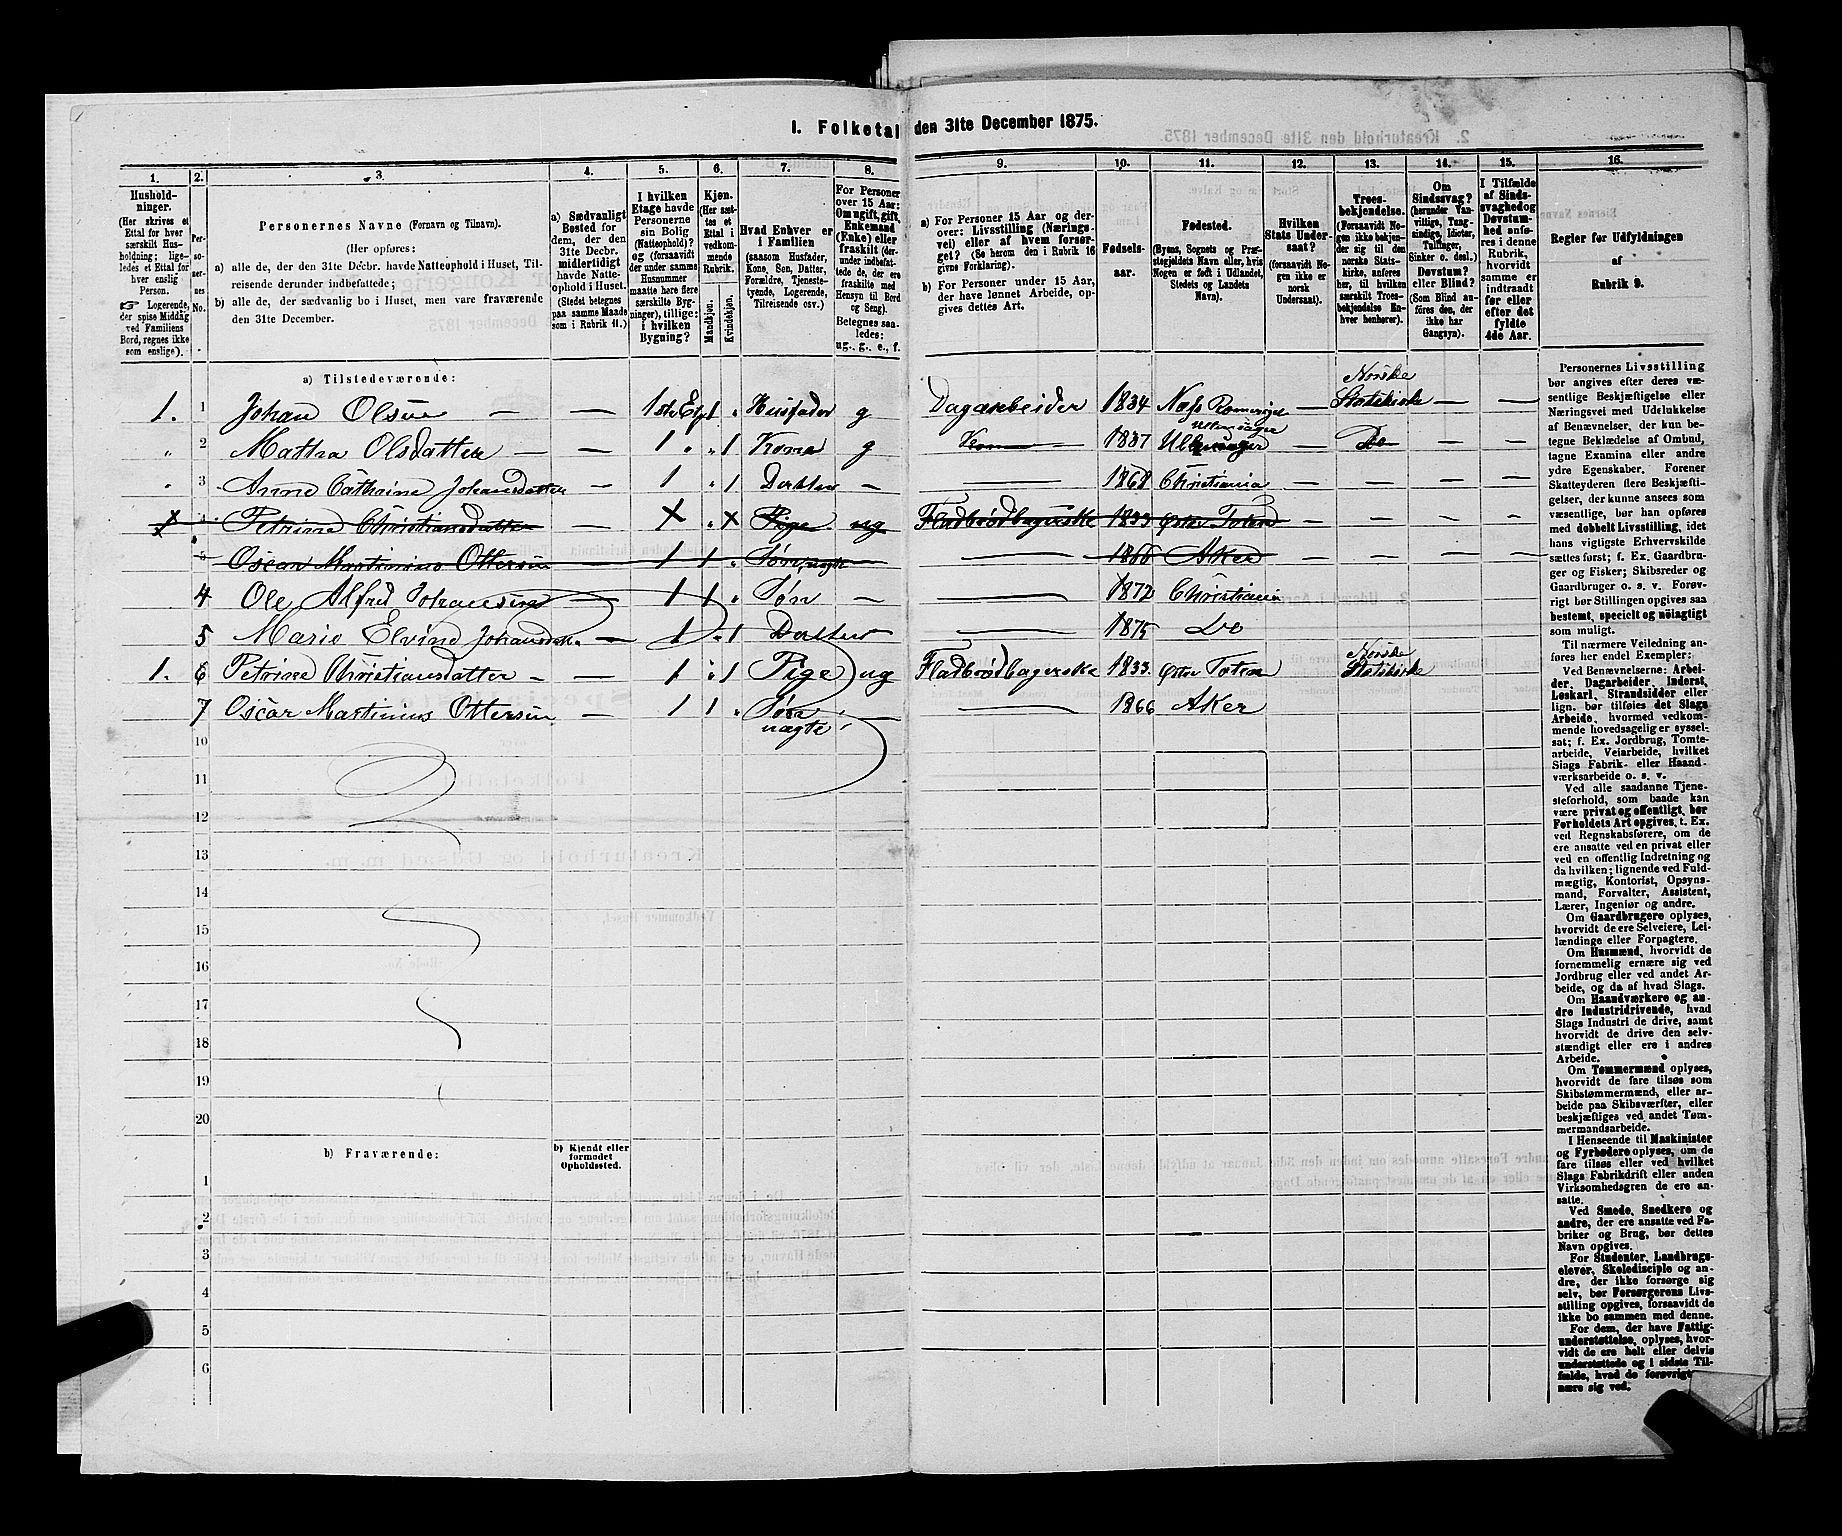 1. Folketal den 31te December 1875.
1. 2. 3. 4. 5. 6. 7. 8. 9. 10. 11. 12. 13. 14. 15. 16.
Husholdninger.
(Her skrives et Ettal for hver særskilt Husholdning; ligeledes et Ettal for hver enslig Person.
☞ Logerende, der spise Middag ved Familiens Bord, regnes ikke som enslige).
Personernes No.
Personernes Navne (Fornavn og Tilnavn).
(Her opføres:
a) alle de, der den 31te Decbr. havde Natteophold i Huset, Tilreisende derunder indbefattede;
b) alle de, der sædvanlig bo i Huset, men vare fraværende den 31te December.
a) Sædvanligt Bosted for dem, der den 31te Decbr. midlertidigt havde Natteophold i Huset.
(Stedet betegnes paa samme Maade som i Rubrik 11.)
I hvilken Etage havde Personerne sin Bolig (Natteophold)? og (forsaavidt der under samme Husnummer maatte høre flere særskilte Bygninger), tillige: i hvilken Bygning?
Kjøn.
(Her sættes et Ettal i vedkommende Rubrik.
Mandkjøn.
Kvindekjøn.
Hvad Enhver er i Familien
(saasom Husfader, Kone, Søn, Datter, Forældre, Tjenestetyende, Logerende, Tilreisende osv.)
For Personer over 15 Aar: Om ugift, gift, Enkemand (Enke) eller fraskilt (derunder indbefattede de, der ere fraskilte med Hensyn til Bord og Seng).
Betegnes saaledes: ug., g., e., f.
a) For Personer 15 Aar og derover: Livsstilling (Næringsvei) eller af hvem forsørget? (Se herom den i Rubrik 16 givne Forklaring).
b) For Personer under 15 Aar, der have lønnet Arbeide, opgives dettes Art.
Fødselsaar.
Fødested.
(Byens, Sognets og Præstegjeldets Navn eller, hvis Nogen er født i Udlandet, Stedets og Landets Navn).
Hvilken Stats Undersaat?
(forsaavidt Nogen ikke er norsk Undersaat).
Troesbekjendelse.
(Forsaavidt Nogen ikke bekjender sig til den norske Statskirke, anføres her, til hvilken særskilt Troesbekjendelse Enhver henhører).
Om Sindssvag? (herunder Vanvittige, Tungsindige, Idioter, Tullinger, Sinker o. desl.)
Døvstum? eller Blind?
(Som Blind anføres den, der ikke har Gangsyn).
I Tilfælde af Sindssvaghed og Døvstumhed anføres i denne Rubrik, hvorvidt samme er indtraadt før eller efter det fyldte 4de Aar.
Regler for Udfyldningen
af
Rubrik 9.
a) Tilstedeværende:
1. 1 Johan Olsen — — 1ste Etg 1 Husfader g Dagarbeider 1834 Næs Romerige — Norske Statskirke — —
" 2 Mattea Olsdatter — — 1 " 1 Kone g Kone 1837 Ullensager — Do — —
" 3 Anne Cathrine Johansdatter — 1 1 Datter — 1868 Christiania — — —
4 Petrine Christiansdatter X " X Pige ug Fladbrødbagerske 1833 Østre Toten — —
5 Oscar Martinius Ottersen 1 1 Søn uægte 1866 Aker
4 Ole Alfred Johansen — 1 1 " Søn — 1872 Christiania
5 Marie Elvine Johansdatter — 1 1 Datter 1875 Do
1. 6 Petrine Christiansdatter - — 1 1 Pige ug Fladbrødbagerske 1833 Østre Toten Norske Statskirke
7 Oscar Martinius Ottersen — 1 1 " Søn uægte — 1866 Aker
10
11
12
13
14
15
16
17
18
19
20
b) Fraværende:
b) Kjendt eller formodet Opholdssted.
1
2
3
4
5
6
Personernes Livsstilling
bør angives efter deres væ-
sentlige Beskjæftigelse eller
Næringsvei med Udelukkelse
af Benævnelser, der kun be-
tegne Beklædelse af Ombud,
tagne Examina eller andre
ydre Egenskaber. Forener
Skatteyderen flere Beskjæfti-
gelser, der kunne ansees som
væsentlige, bør han opføres
med dobbelt Livsstilling, idet
hans vigtigste Erhvervskilde
sættes først; f. Ex. Gaardbru-
ger og Fisker; Skibsreder og
Gaardbruger o. s. v. Forøv-
rigt bør Stillingen opgives saa
bestemt, specielt og nøiagtigt
som muligt.
Til nærmere Veiledning an-
føres her endel Exempler:
Ved Benævnelserne: Arbei-
der, Dagarbeider, Inderst,
Løskarl, Strandsidder eller
lign. bør tilføies det Slags
Arbeide, hvormed vedkom-
mende hovedsagelig er syssel-
sat; f. Ex. Jordbrug, Tomte-
arbeide, Veiarbeide, hvilket
Slags Fabrik- eller Haand-
værksarbeide o. s. v.
Ved alle saadanne Tjene-
steforhold, som baade kan
være privat og offentligt, bør
Forholdets Art opgives, t. Ex.
ved Regnskabsførere, om de
ere ansatte ved en privat eller
ved en offentlig Indretning og
da hvilken; lignende ved Fuld-
mægtig, Kontorist, Opsyns-
mand, Forvalter, Assistent,
Lærer, Ingeniør og andre.
Om Gaardbrugere oplyses,
hvorvidt de ere Selveiere, Lei-
lændinge eller Forpagtere.
Om Husmænd, hvorvidt de
fornemmelig ernære sig ved
Jordbrug eller ved andet Ar-
beide, og da af hvad Slags.
Om Haandværkere og an-
dre Industridrivende, hvad
Slags Industri de drive, samt
hvorvidt de drive den selv-
stændigt eller ere i andres
Arbeide.
Om Tømmermænd oplyses,
hvorvidt de fare tilsøs som
Skibstømmermænd, eller ar-
beide paa Skibsværfter, eller
beskjæftiges ved andet Tøm-
mermandsarbeide.
I Henseende til Maskinister
og Fyrbødere oplyses, om de
fare tilsøs eller ved hvilket
Slags Fabrikdrift eller anden
Virksomhedsgren de ere an-
satte.
Ved Smede, Snedkere og
andre, der ere ansatte ved Fa-
briker og Brug, bør dettes
Navn opgives.
For Studenter, Landbrugs-
elever, Skoledisciple og an-
dre, der ikke forsørge sig
selv, bør Forsørgerens Livs-
stilling opgives, forsaavidt de
ikke bo sammen med denne.
For dem, der have Fattig-
understøttelse, oplyses, hvor-
vidt de ere helt eller delvis
understøttede og i sidste Til-
fælde, hvad de forøvrigt
nære sig ved.